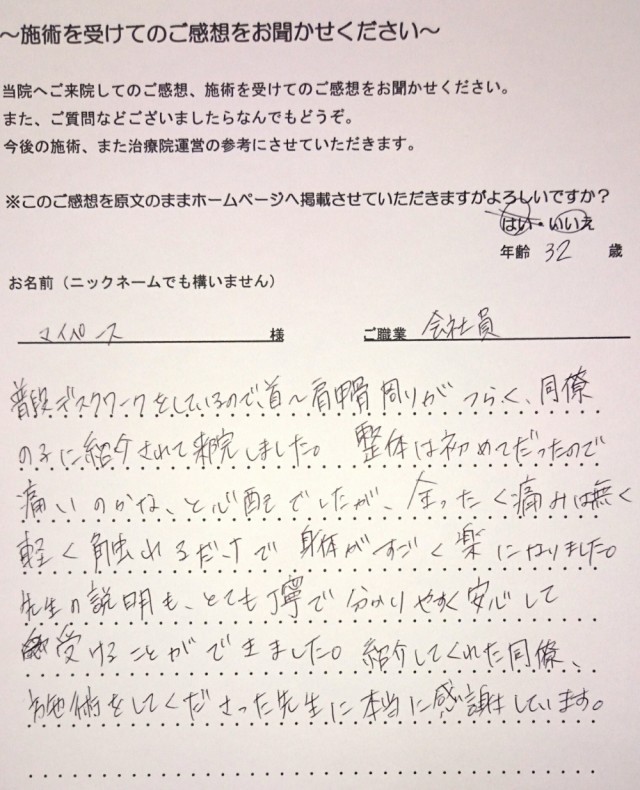 ～施術を受けてのご感想をお聞かせください～
当院へご来院してのご感想、施術を受けてのご感想をお聞かせください。
また、ご質問などございましたらなんでもどうぞ。
今後の施術、また治療院運営の参考にさせていただきます。
※このご感想を原文のままホームページへ掲載させていただきますがよろしいですか？
はい・いいえ
年齢 32 歳
お名前（ニックネームでも構いません）
マイペース 様 ご職業 会社員
普段デスクワークをしているので、首～肩甲骨周りがつらく、同僚
の子に紹介されて来院しました。 整体は初めてだったので
痛いのかな、と心配でしたが、全ったく痛みは無く
軽く触れるだけで身体がすごく楽になりました。
先生の説明も、とても丁寧で分かりやすく安心して
受けることができました。紹介してくれた同僚、
施術をしてくださった先生に本当に感謝しています。